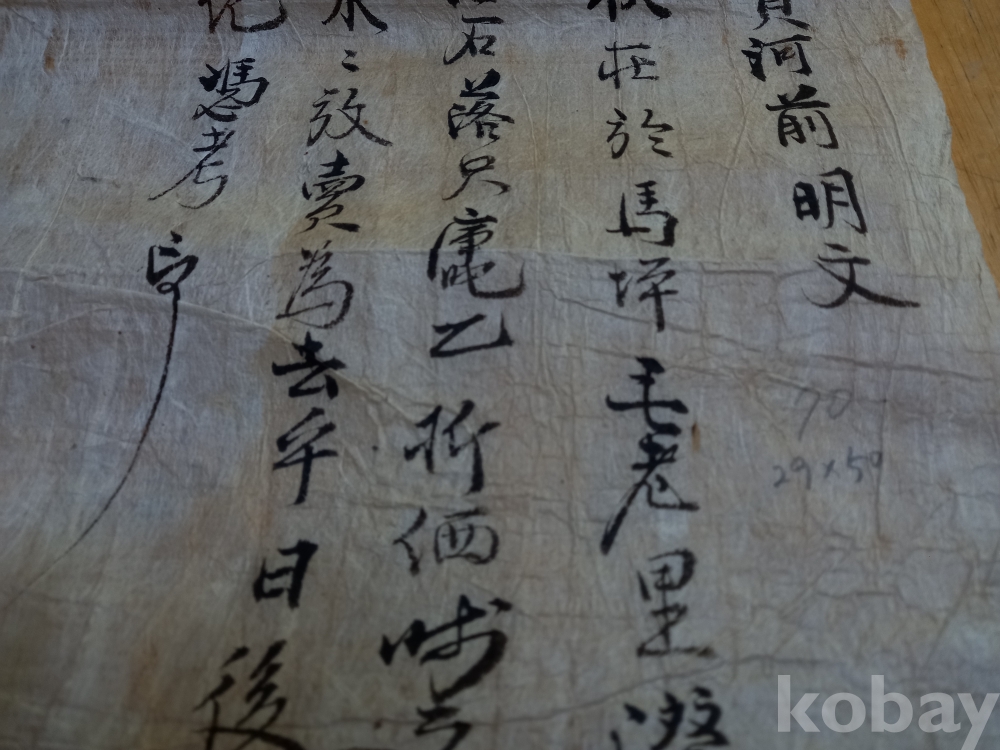 河前明文
在於馬坪毛老里
石落只庫乙所価時
永〻放賣為去乎日後
憑考事
70
29×50
kobay